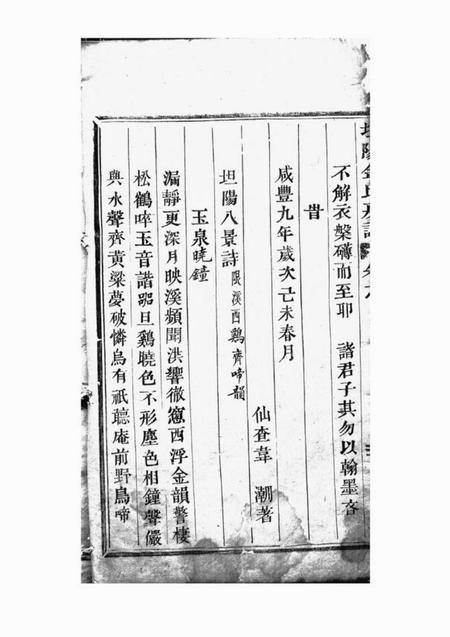 坦陽金氏宗譜 卷六
不解衣槃礴而至耶　諸君子其勿以翰墨吝
昔
咸豐九年歲次己未春月
仙查韋　潮著
坦陽八景詩 限溪西鷄齊啼韻
玉泉曉鐘
漏靜更深月映溪頻聞洪響徹窻西浮金韻警棲
松鶴啐玉音諧嘂旦鷄曉色不形塵色相鐘聲儼
與水聲齊黃粱夢破憐烏有祇聽庵前野鳥啼